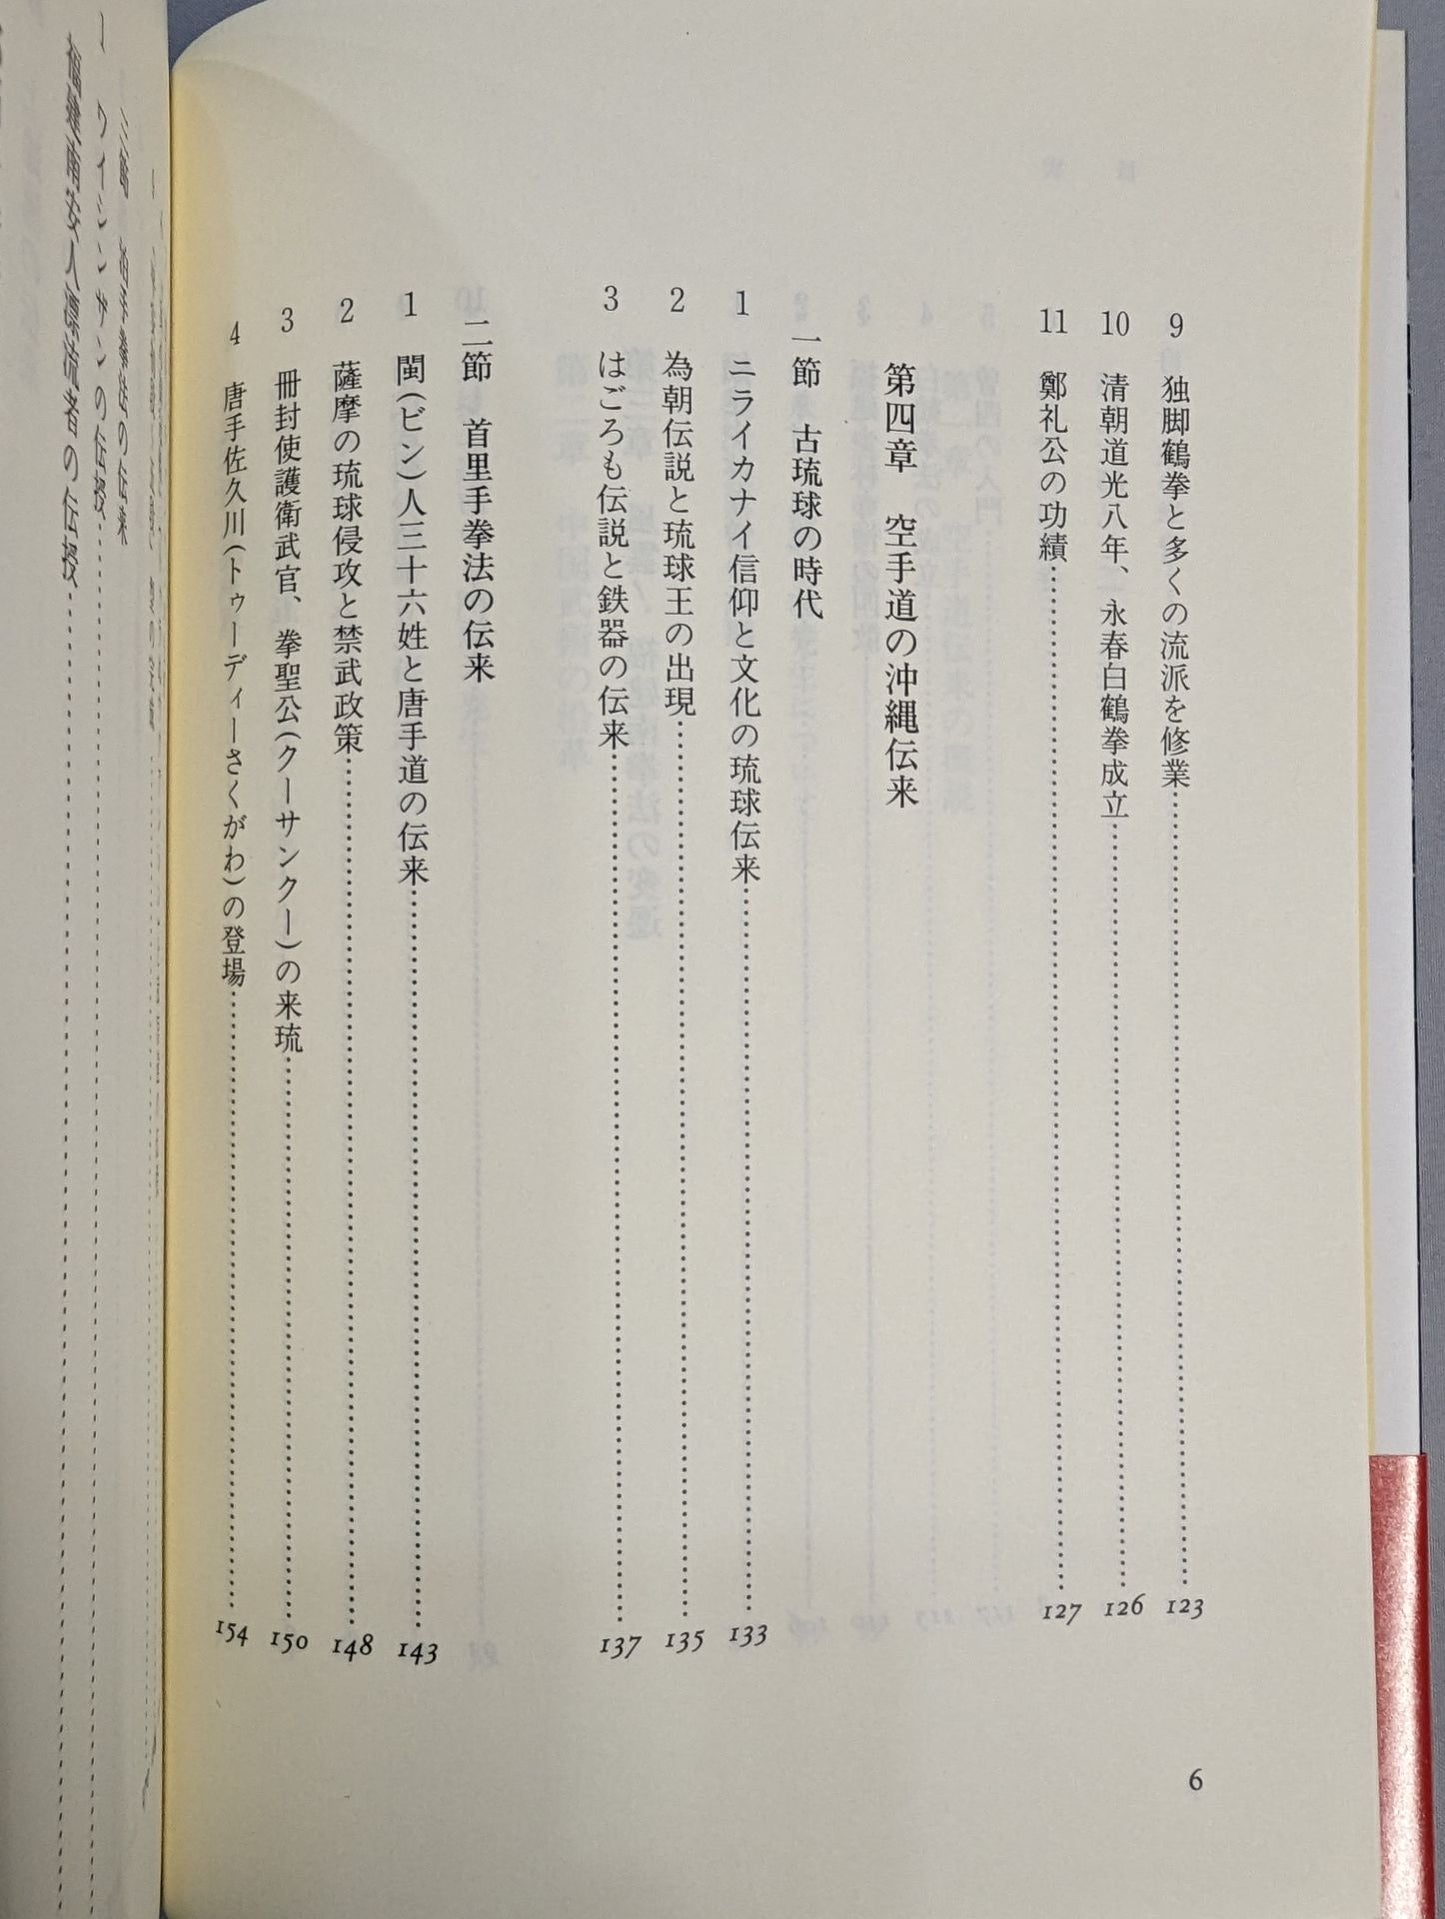 9 独脚鶴拳と多くの流派を修業……123
10 清朝道光八年、永春白鶴拳成立……126
11 鄭礼公の功績……127
第四章 空手道の沖縄伝来
一節 古琉球の時代
1 ニライカナイ信仰と文化の琉球伝来……133
2 為朝伝説と琉球王の出現……135
3 はごろも伝説と鉄器の伝来……137
二節 首里手拳法の伝来
1 閩(ビン)人三十六姓と唐手道の伝来……143
2 薩摩の琉球侵攻と禁武政策……148
3 冊封使護衛武官、拳聖公(クーサンクー)の来琉……150
4 唐手佐久川(トゥーディーさくがわ)の登場……154
6
三節 泊手拳法の伝来
1 ワイシンザンの伝授……
福建南安人漂流者の伝授……